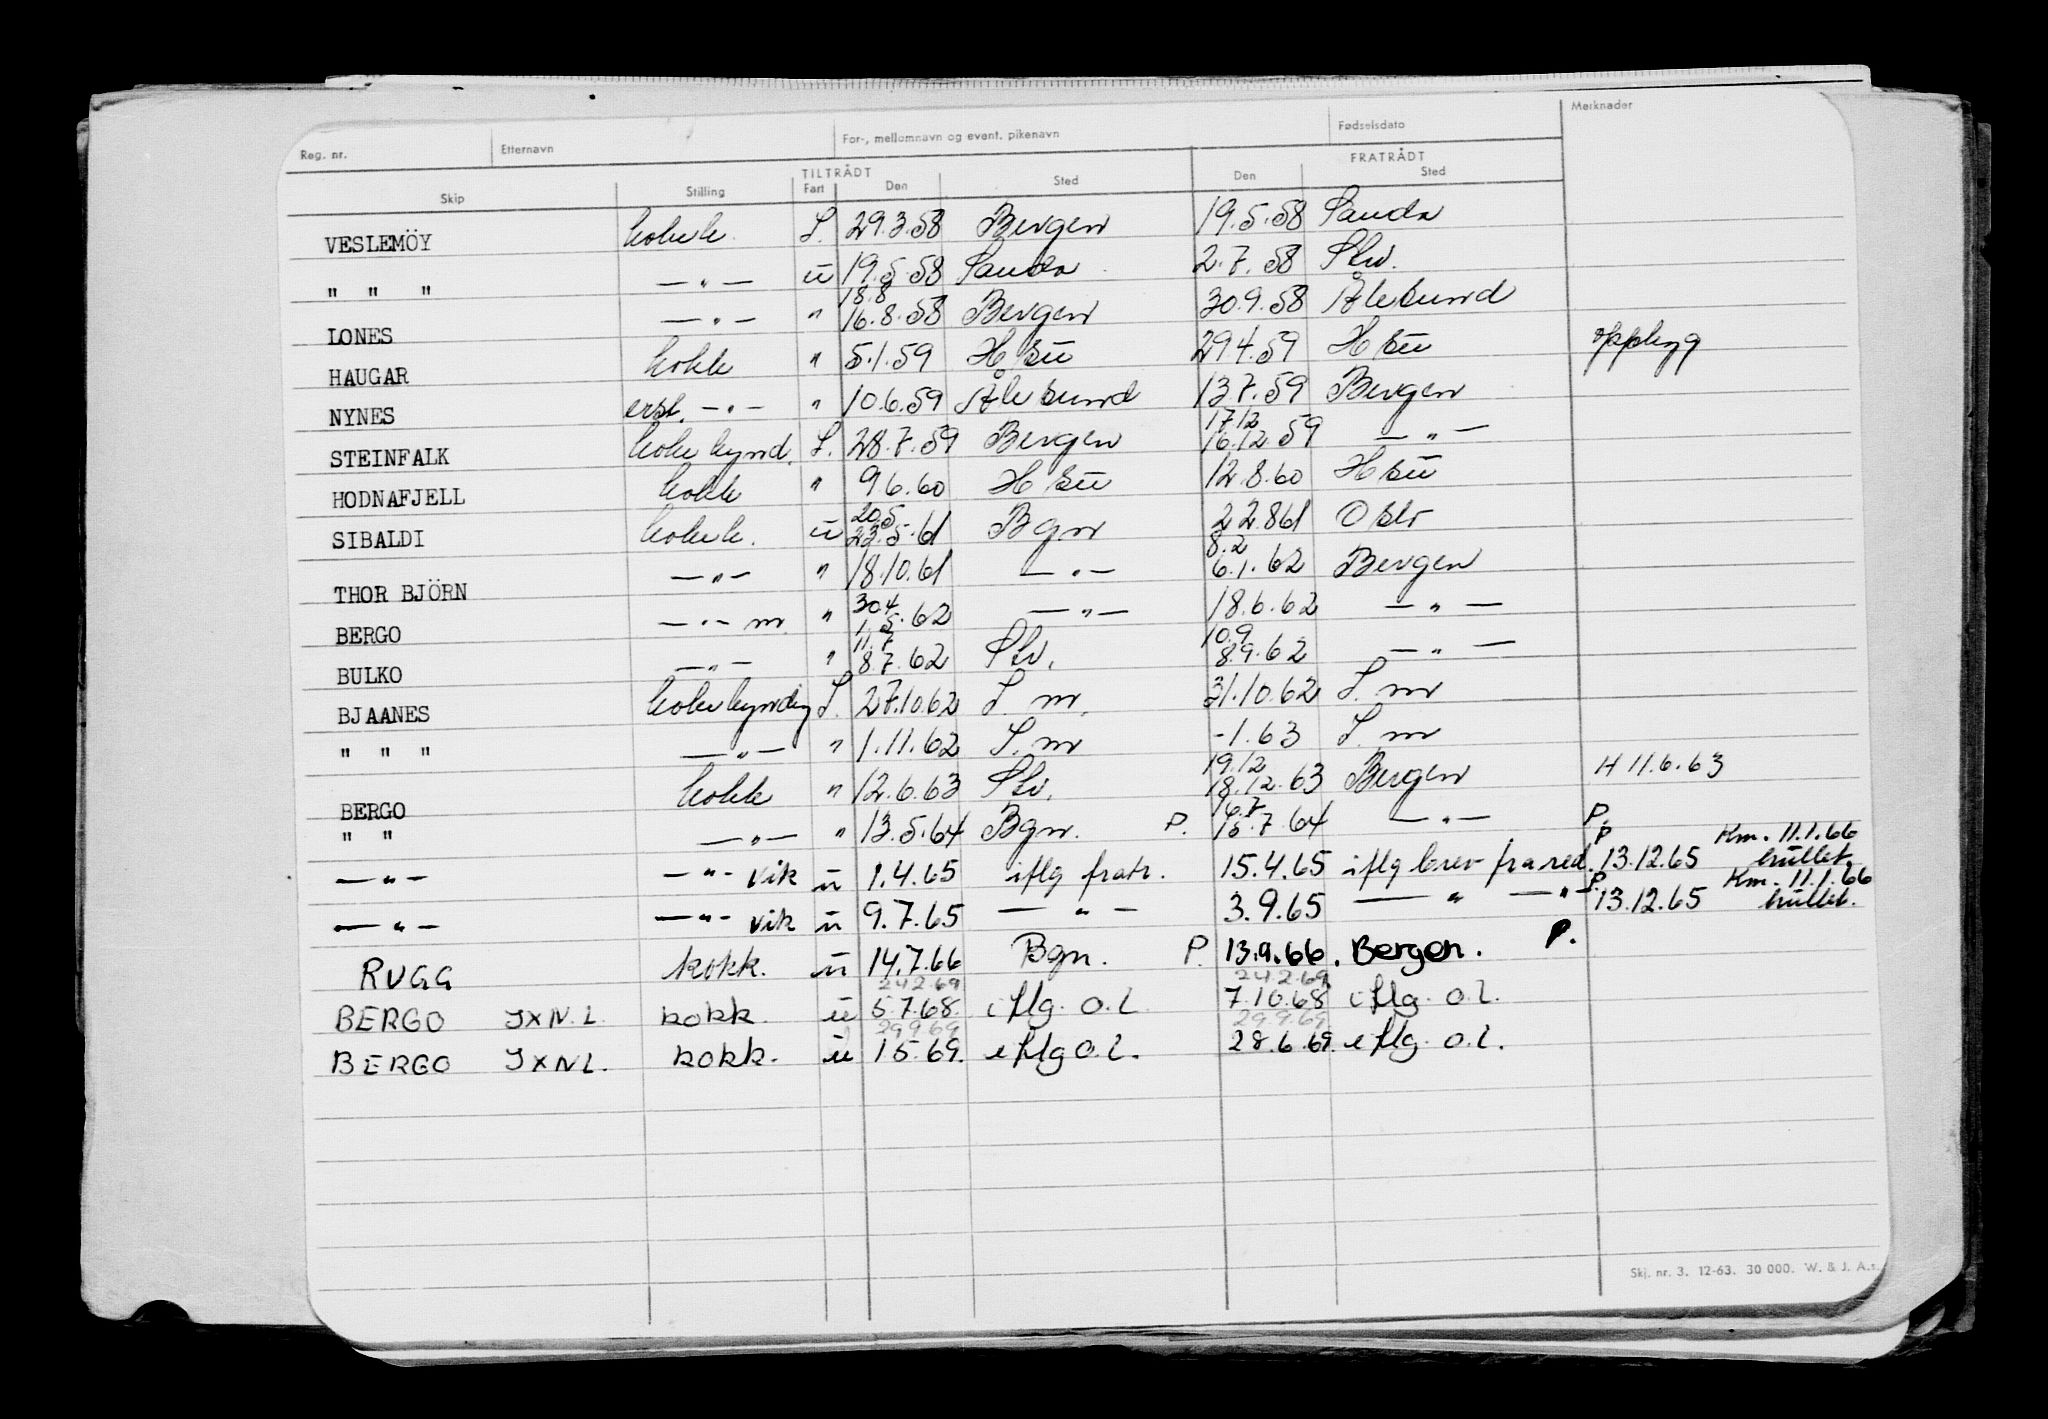 Reg. nr. Etternavn For-, mellomnavn og event. pikenavn Fødselsdato Merknader
TILTRÅDT FRATRÅDT
Skip Stilling Fart Den Sted Den Sted
VESLEMÖY kokk. L. 29.3.58 Bergen 19.5.58 Sauda
" " " — " — u 19.5.58 Sauda 2.7.58 Stv.
18.8
LONES — " — " 16.8.58 Bergen 30.9.58 Ålesund
HAUGAR kokk " 5.1.59 H su 29.4.59 H su oppbyg
NYNES erst. — " — " 10.6.59 Ålesund 13.7.59 Bergen
17.12
STEINFALK L. 28.7.59 Bergen 16.12.59 — " —
HODNAFJELL kokk " 9.6.60 H su 12.8.60 H su
20.5
SIBALDI u 23.5.61 Bgn 22.8.61 Oslo
8.2
THOR BJÖRN — " — " 18.10.61 — " — 6.1.62 Bergen
30.4
BERGO — " — m. " 1.5.62 — " — 18.6.62 — " —
11.7 10.9
BULKO — " — " 8.7.62 Stv. 8.9.62 — " —
BJAANES L. 27.10.62 L. m. 31.10.62 L. m
" " " — " — " 1.11.62 L. m -1.63 L. m
19.12
BERGO kokk " 12.6.63 Stv. 18.12.63 Bergen H 11.6.63
16.7
" " — " — " 13.5.64 Bgn. P. 15.7.64 — " — P.
P Km. 11.1.66
— " — — " — vik u 1.4.65 iflg fratr. 15.4.65 iflg brev fra red. 13.12.65 hullet.
P. Km. 11.1.66
— " — — " — vik u 9.7.65 — " — 3.9.65 — " — — " — 13.12.65 hullet.
RUGG kokk. u 14.7.66 Bgn. P. 13.9.66. Bergen. P.
242.69 242.69
BERGO JXNL. kokk. u 5.7.68. iflg. o.l. 7.10.68 iflg. o.l.
29969 29.9.69
BERGO JXNL. kokk. u 1.5.69. iflg o.l. 28.6.69. iflg. o.l.
Skj. nr. 3. 12-63. 30 000. W. & J. A.s.